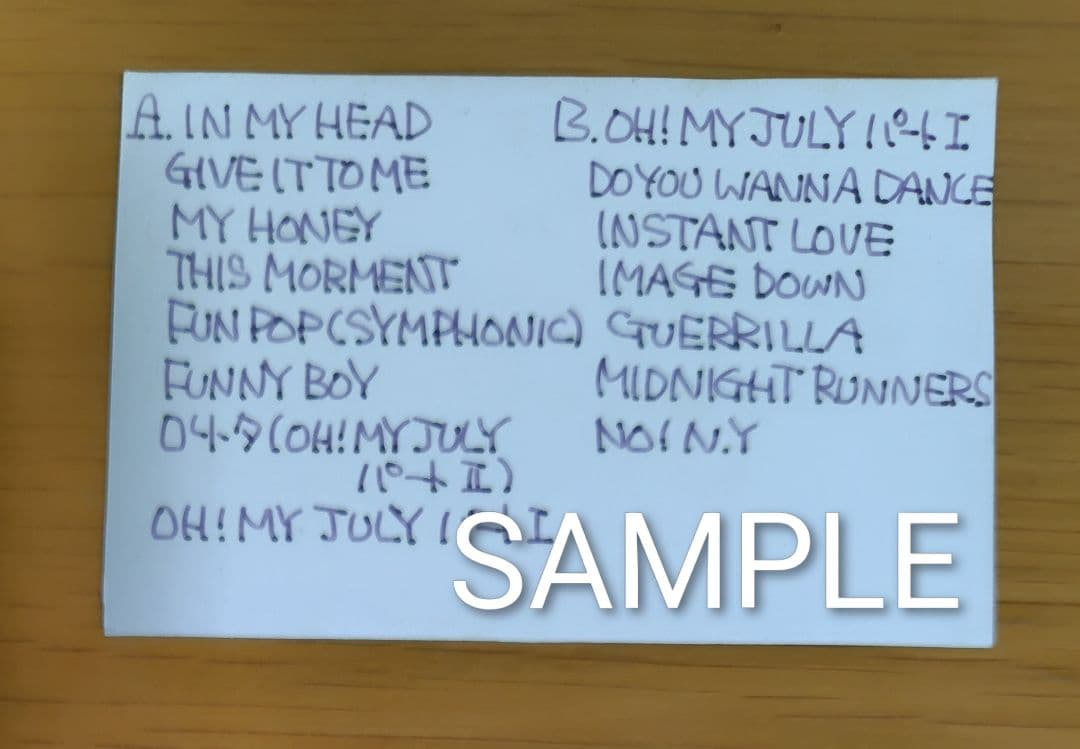 A. IN MY HEAD
GIVE IT TO ME
MY HONEY
THIS MORMENT
FUN POP (SYMPHONIC)
FUNNY BOY
04-ク (OH! MY JULY
パート II)
OH! MY JULY I
B. OH! MY JULY パート I
DO YOU WANNA DANCE
INSTANT LOVE
IMAGE DOWN
GUERRILLA
MIDNIGHT RUNNERS
NO! N.Y
SAMPLE